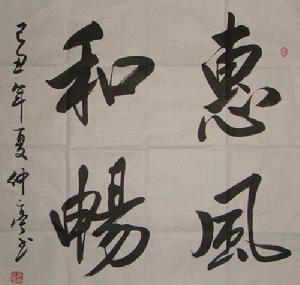 惠風
和暢
己丑年夏仲亮书